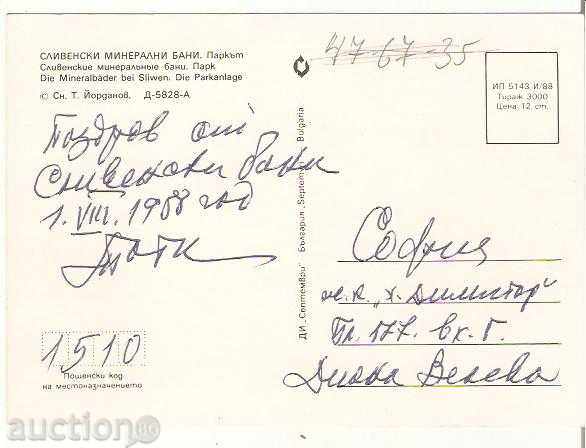 СЛИВЕНСКИ МИНЕРАЛНИ БАНИ. Паркът
Сливенские минеральные бани. Парк
Die Mineralbäder bei Sliwen. Die Parkanlage
© Сн. Т. Йорданов. Д-5828-А
47-67-35
ИП 5143 И/88
Тираж 3000
Цена: 12 ст.
Поздрав от
Сливенски бани
1.VIII.1988 год
ДИ „Септември" България „Septemvri" Bulgaria
София
ж.к. „Х. Димитър"
Бл. 177. вх. Г.
Диана Велева
1510
Пощенски код
на местоназначението
auction